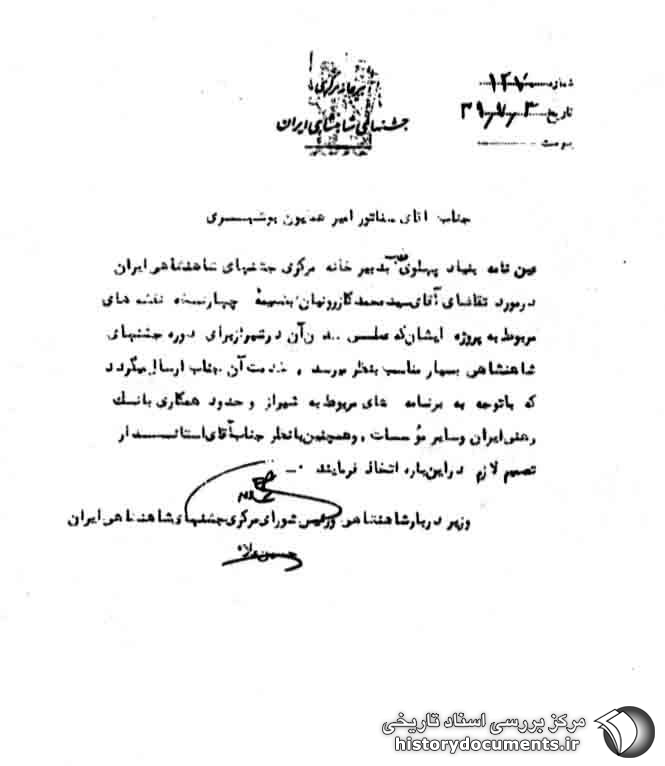 شماره ۱۲۷۰
تاریخ ۳۹٫۷٫۳
پیوست
دبیرخانه مرکزی
جشنهای شاهنشاهی ایران
جناب آقای سناتور امیر همایون بوشهری
عین نامه بنیاد پهلوی بدبیر خانه مرکزی جشنهای شاهنشاهی ایران
در مورد تقاضای آقای سید محمد کازرونیان بضمیمهٔ چهار نسخه نقشه های
مربوط به پروژه ایشان که عملی شدن آن در شیراز برای دوره جشنهای
شاهنشاهی بسیار مناسب بنظر میرسد و خدمت آن جناب ارسال میگردد
که باتوجه به برنامه های مربوط به شیراز و حدود همکاری بانک
رهنی ایران و سایر مؤسسات و همچنین با نظر جناب آقای استاندار
تصمیم لازم در این باره اتخاذ فرمایند .
وزیر دربار شاهنشاهی و رئیس شورای مرکزی جشنهای شاهنشاهی ایران
حسین علاء
مرکز بررسی اسناد تاریخی
historydocuments.ir